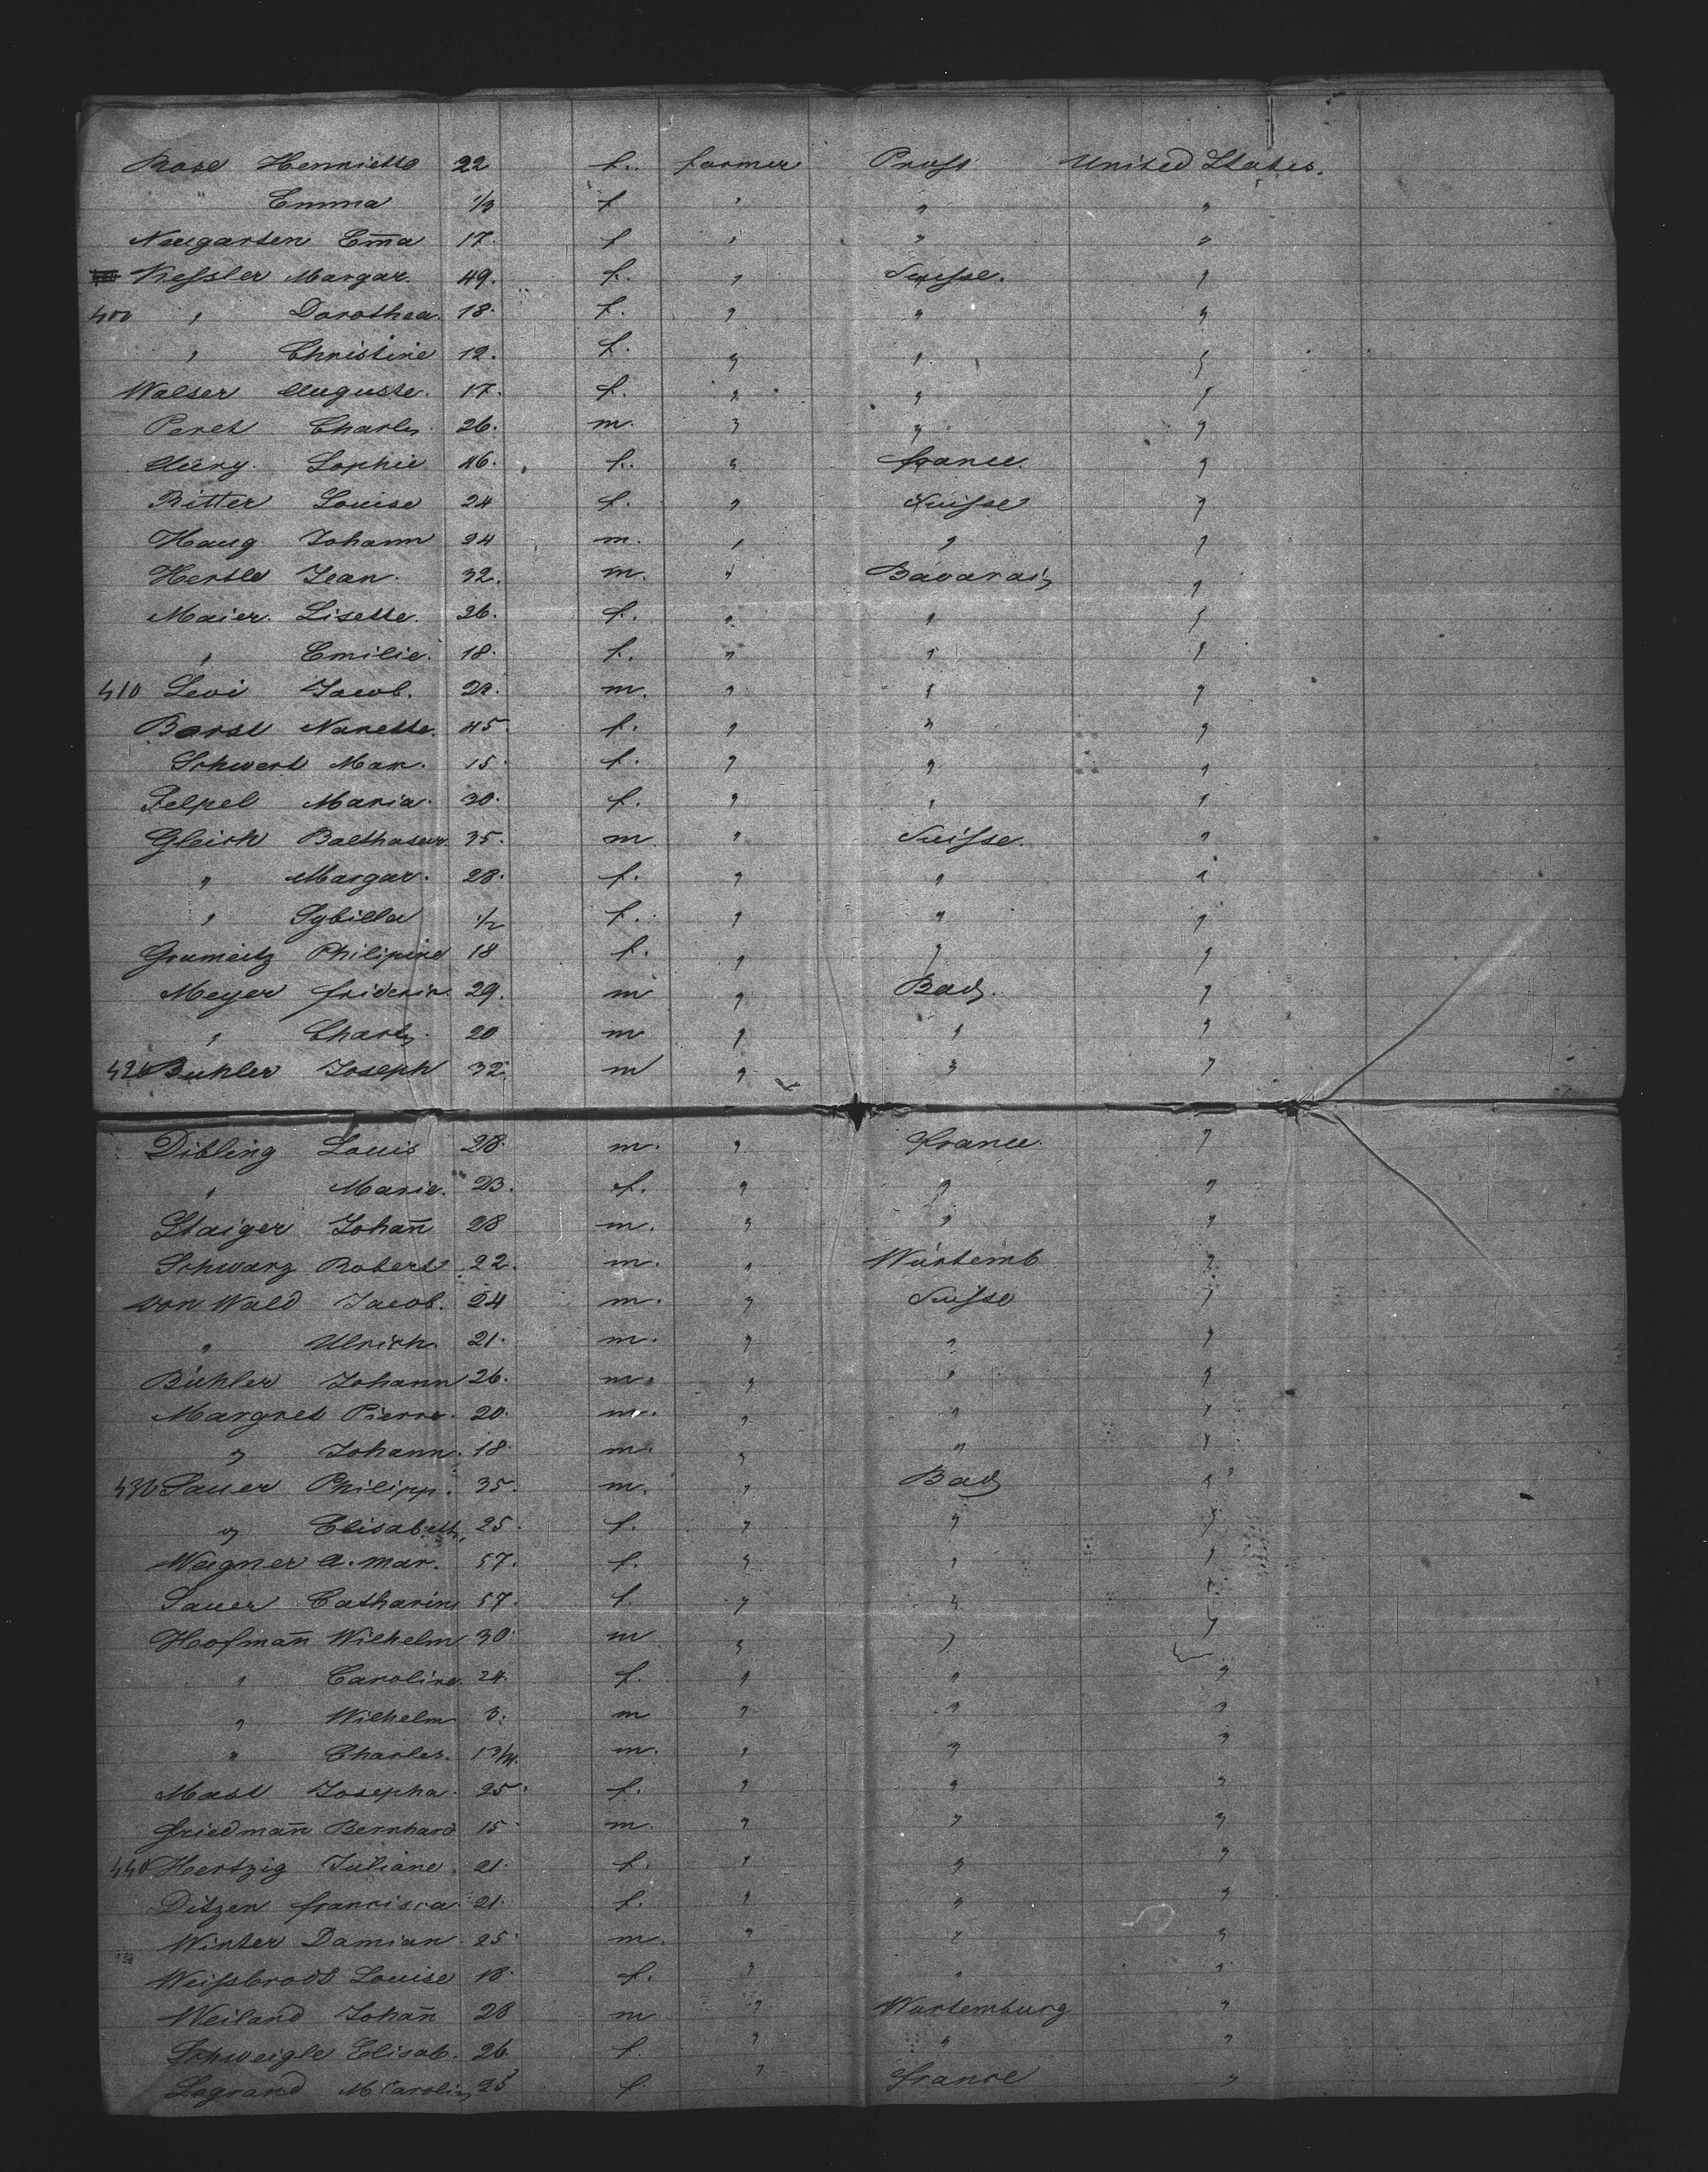 Rose Henriette 22 f. farmer Pruss United States.
" Emma 1/2 f " " "
Neugarten Em̄a 17. f " " "
Kiessler Margar. 49. f. " Suisse. "
400 " Dorothea. 18. f. " " "
" Christine 12. f. " " "
Walser Auguste. 17. f. " " "
Peret Charles 26. m. " " "
Sophie 46. f. " france. "
Ritter Louise 24 f. " Suisse "
Haug Johann 24 m. " " "
Hertle Jean. 32. m. " "
Maier. Lisette. 26. f. " " "
" Emilie. 18. f. " " "
410 Levi Jacob. 22. m. " " "
Borst Nanette. 45. f. " " "
Schwert Mar. 15. f. " " "
Felpel Maria. 30. f. " " "
Gleich Balthasar. 35. m. " Suisse. "
" Margar. 28. f. " " "
" Sybilla 1/2 f. " " "
Philipine 18 f. " " "
Meyer frideric. 29. m " Bad. "
" Charles 20 m " " "
420 Buhler Joseph 32. m " " "
Dibling Louis 28. m. " france. "
" Marie. 23. f. " " "
Staiger Johan̄ 28 m. " " "
Schwarz Robert 22. m. " Würtemb "
von Wald Jacob. 24 m. " Suisse "
" Ulrich. 21. m. " " "
Bühler Johann 26. m. " " "
Margret Pierre. 20. m. " " "
" Johann. 18. m. " " "
430 Sauer Philipp. 35. m. " Bad "
" Elisabeth, 25. f. " " "
Wagner a. mar. 57. f. " " "
Sauer Catharine 57. f. " " "
Hofman̄ Wilhelm 30. m " " "
" Caroline. 24. f. " " "
" Wilhelm 3. m " " "
" Charles. 1 3/4. m. " " "
Mast Josepha. 25. f. " " "
friedman̄ Bernhard 15 m. " " "
440 Hertzig Juliane. 21. f. " " "
Ditzen francisca 21. f. " " "
Winter Damian. 25. m. " " "
Weissbrodt Louise 18. f. " " "
Weiland Johan̄ 28 m " Wurtemburg "
Schweigle Elisab. 26. f. " " "
Legrand M Carolin 25 f. " france "